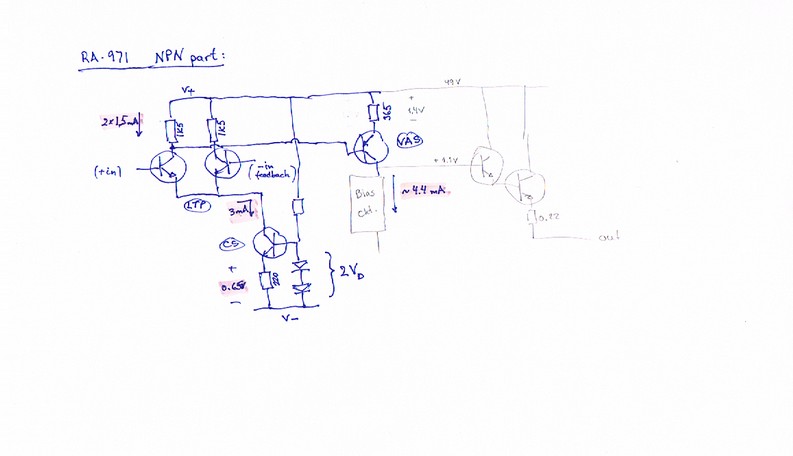 RA-971 NPN part:
V+
49V
2x1,5mA
1K5
1K5
365
+
1,4V
-
VAS
(+in)
(-in
feedback)
LTP
3mA
Bias
ckt.
~4.4 mA.
0.22
out
CS
+
0.65V
-
220
2VD
V-